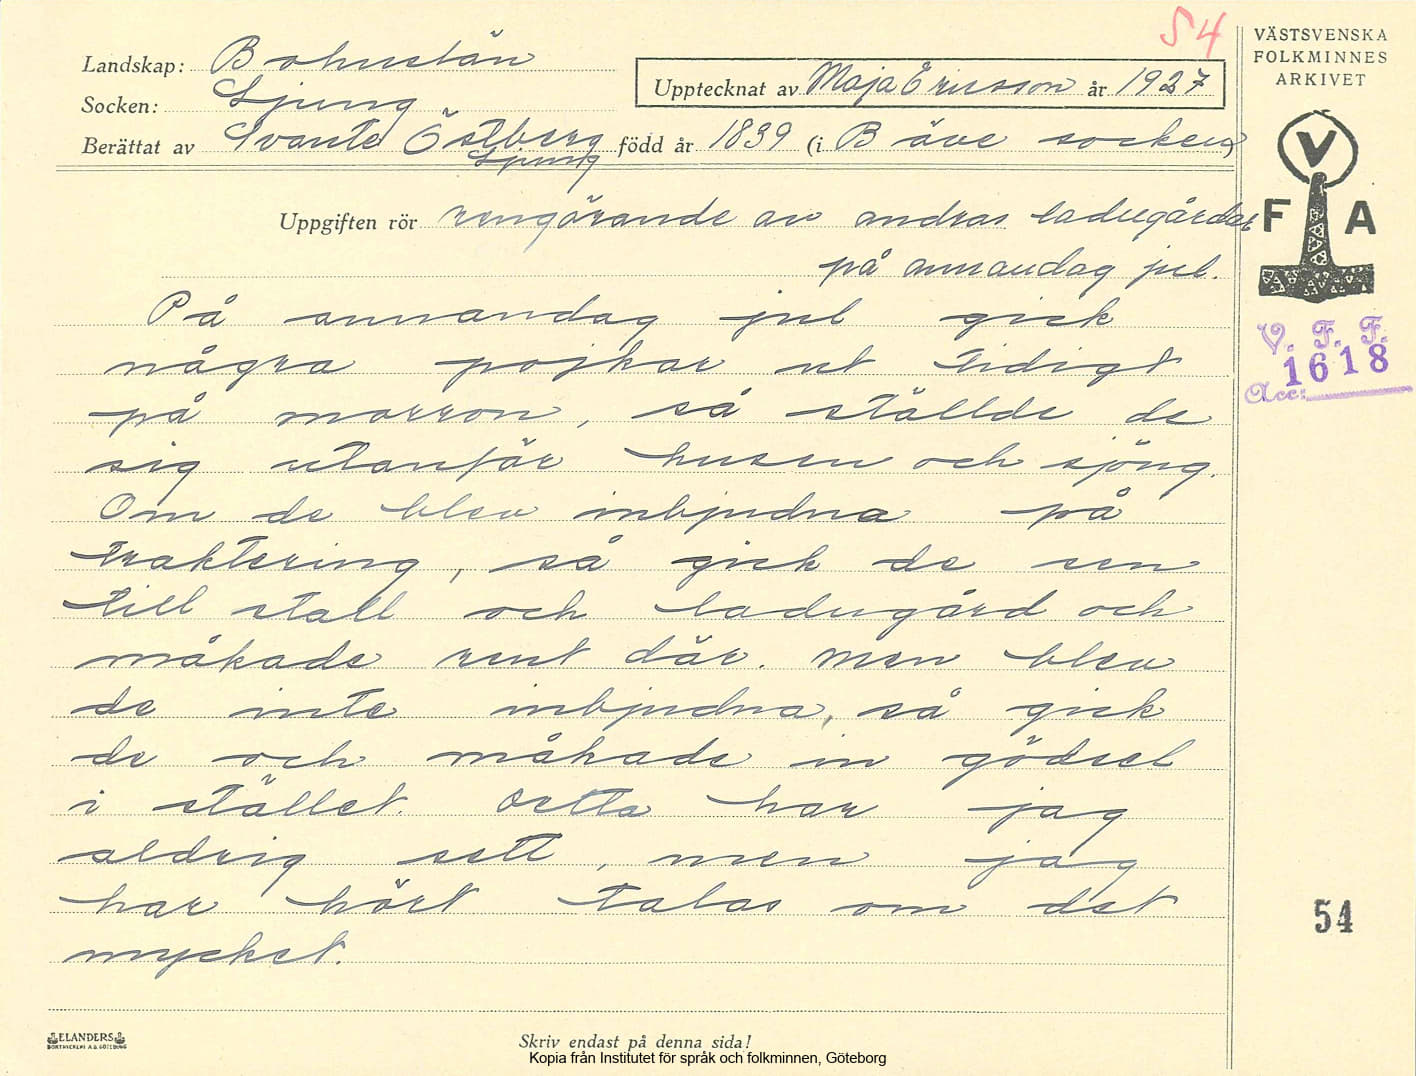 54
VÄSTSVENSKA
FOLKMINNES
ARKIVET
Landskap: Bohuslän
Socken: Ljung
Upptecknat av Maja Ericsson år 1927
Berättat av Svante Östberg född år 1839 (i Bäve socken)
Ljung
V
F A
Uppgiften rör rengörande av andras ladugårdar
på annandag jul.
På annandag jul gick
några pojkar ut tidigt
på morron, så ställde de
sig utanför husen och sjöng.
Om de blev inbjudna på
traktering, så gick de sen
till stall och ladugård och
måkade rent där. Men blev
de inte inbjudna, så gick
de och måkade in gödsel
i stället. Detta har jag
aldrig sett, men jag
har hört talas om det
mycket.
V. F. F.
1618
Acc:
54
ELANDERS
BOKTRYCKERI A.B. GÖTEBORG
Skriv endast på denna sida!
Kopia från Institutet för språk och folkminnen, Göteborg